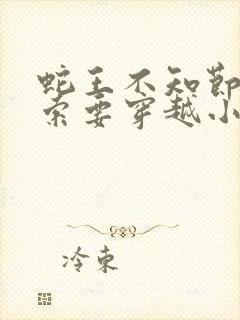 蛇王不知节
索要穿越小
冷束